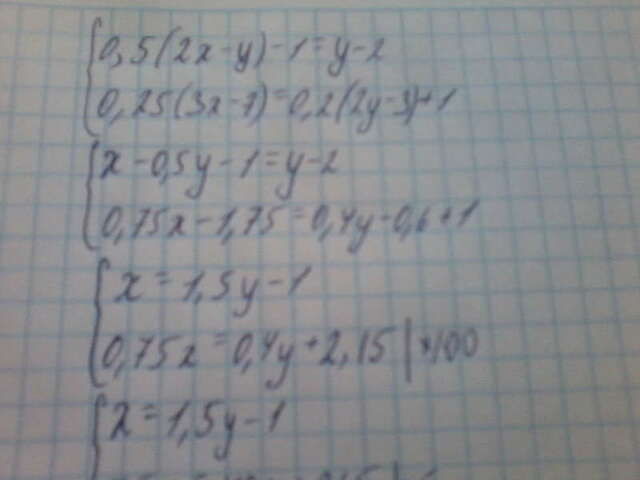 0,5(2x-y)-1=y-2
0,25(3x-7)=0,2(2y-3)+1
x-0,5y-1=y-2
0,75x-1,75=0,4y-0,6+1
x=1,5y-1
0,75x=0,4y+2,15|*100
x=1,5y-1